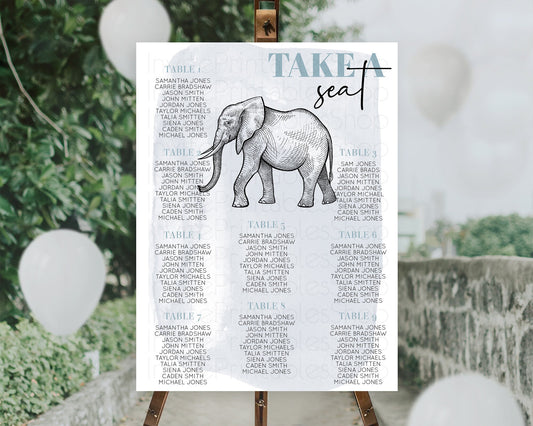 TAKE A
seat
TABLE 1
SAMANTHA JONES
CARRIE BRADSHAW
JASON SMITH
JOHN MITTEN
JORDAN JONES
TAYLOR MICHAELS
TALIA SMITTENS
SIENA JONES
CADEN SMITH
MICHAEL JONES
TABLE 2
SAMANTHA JONES
CARRIE BRADSHAW
JASON SMITH
JOHN MITTEN
JORDAN JONES
TAYLOR MICHAELS
TALIA SMITTENS
SIENA JONES
CADEN SMITH
MICHAEL JONES
TABLE 3
SAM JONES
CARRIE BRADS
JASON SMITH
JOHN MITTEN
JORDAN JONES
TAYLOR MICHAELS
TALIA SMITTENS
SIENA JONES
CADEN SMITH
MICHAEL JONES
TABLE 4
SAMANTHA JONES
CARRIE BRADSHAW
JASON SMITH
JOHN MITTEN
JORDAN JONES
TAYLOR MICHAELS
TALIA SMITTENS
SIENA JONES
CADEN SMITH
MICHAEL JONES
TABLE 5
SAMANTHA JONES
CARRIE BRADSHAW
JORDAN JONES
TAYLOR MICHAELS
TALIA SMITTENS
SIENA JONES
CADEN SMITH
MICHAEL JONES
TABLE 6
SAMANTHA JONES
CARRIE BRADSHAW
JASON SMITH
JOHN MITTEN
JORDAN JONES
TAYLOR MICHAELS
TALIA SMITTENS
SIENA JONES
CADEN SMITH
MICHAEL JONES
TABLE 7
SAMANTHA JONES
CARRIE BRADSHAW
JOHN MITTEN
JORDAN JONES
TAYLOR MICHAELS
TALIA SMITTENS
SIENA JONES
CADEN SMITH
MICHAEL JONES
TABLE 8
SAMANTHA JONES
CARRIE BRADSHAW
JORDAN JONES
TAYLOR MICHAELS
TALIA SMITTENS
SIENA JONES
CADEN SMITH
MICHAEL JONES
TABLE 9
SAMANTHA JONES
CARRIE BRADSHAW
JOHN MITTEN
JORDAN JONES
TAYLOR MICHAELS
TALIA SMITTENS
SIENA JONES
CADEN SMITH
MICHAEL JONES